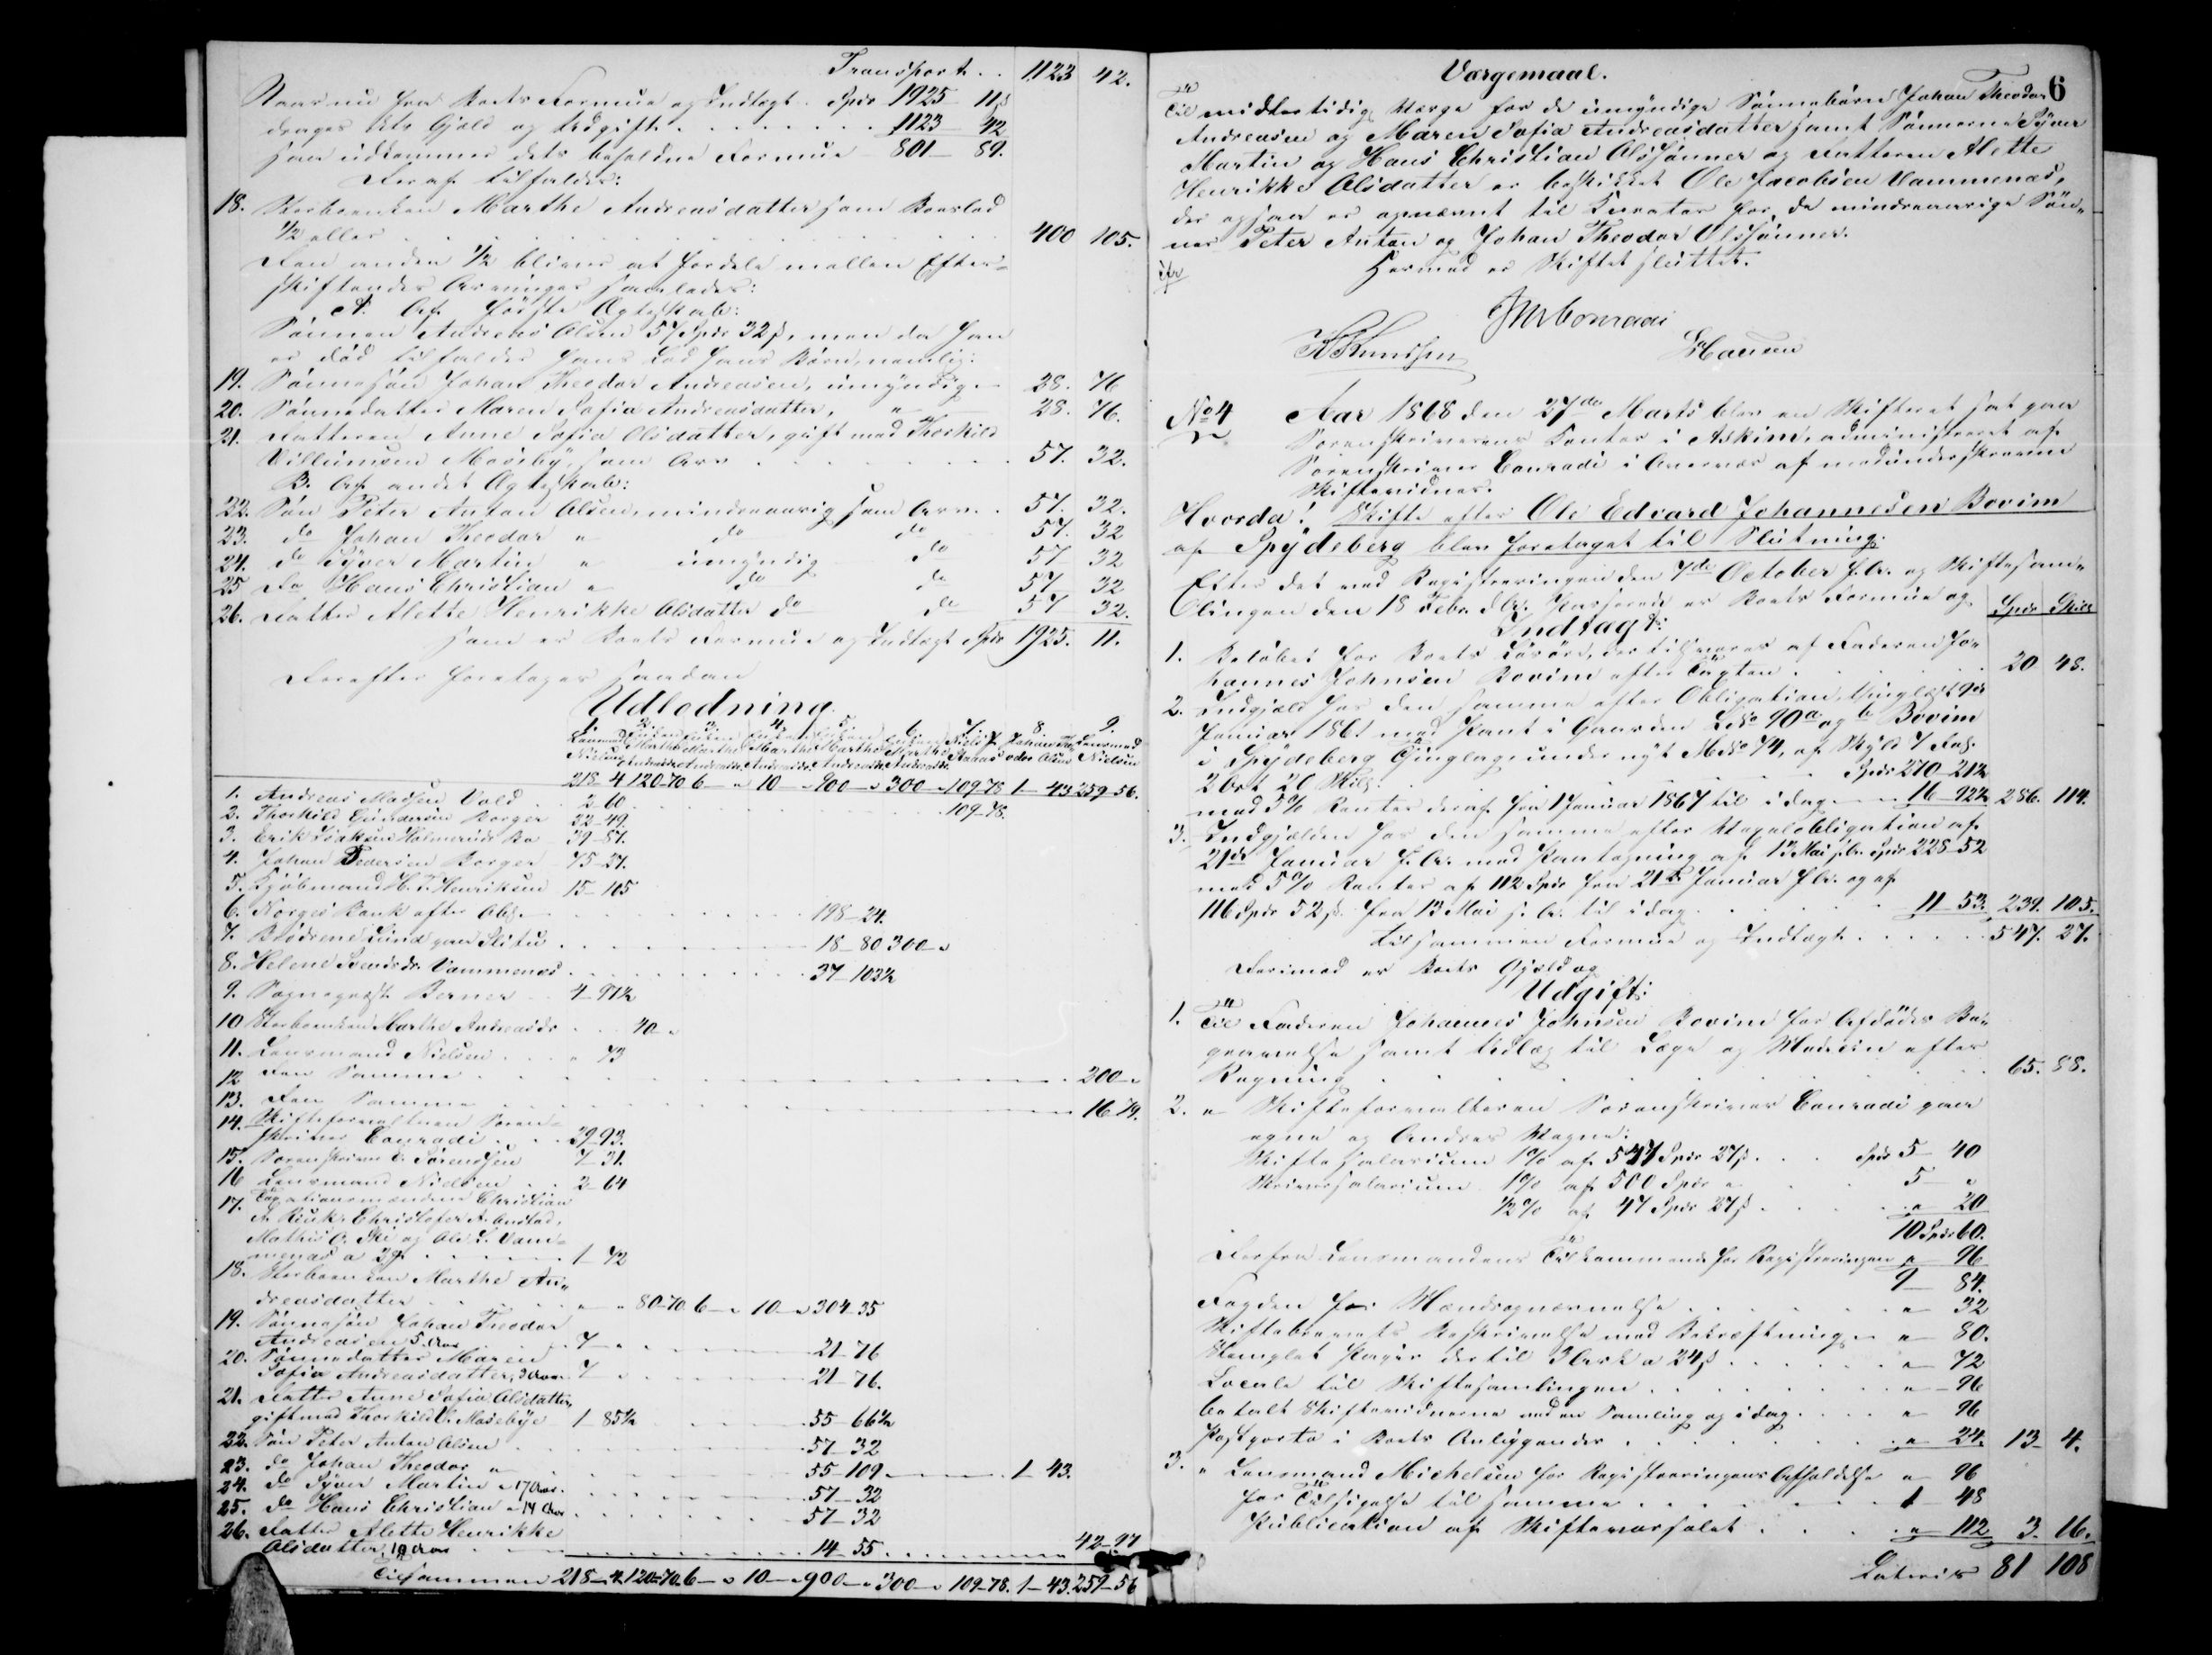 Transport . . 1123 42.
Naar nu fra Boets Formue og Indtægt Spdr 1925 11ß
drages dets Gjæld og Udgift . . . . . . . 1123 42
saa udkommer dets beholdne Formue 801 89.
Deraf tilfalder:
18. Sterboenken Marthe Andreasdatter som Boeslod
1/2 eller . . . . . . . . . . 400 105.
Den anden 1/2 bliver at fordele mellem Efter-
skiftendes Arvinger saaledes:
A. Af første Ægteskab:
Sønnen Andreas Olsen 57 Spdr 32ß, men da han
er død tilfalder hans Lod hans Børn, nemlig:
19. Sønnesøn Johan Theodor Andreasen, umyndig 28. 76
20. Sønnedatter Maren Sofia Andreasdatter, " 28. 76.
21. Datteren Anne Sofia Olsdatter, gift med Thorkild
Villumsen Moseby, som Arv . . . . . . 57. 32.
B. Af andet Ægteskab:
22. Søn Peter Anton Olsen, mindreaarig som Arv . 57. 32.
23. do Johan Theodor " do do 57. 32
24. do Syver Martin " umyndig do 57 32
25 do Hans Christian " do do 57 32
26. Datter Alette Henrikke Olsdatter do do 57 32.
som er Boets Formue og Indtægt Spdr 1925. 11.
Derefter foretoges saadan
Udledning.
1. 2. 3. 4. 5. 6. 7. 8. 9.
218-4 120-70 6-" 10-" 900-" 300-" 109-78 1-43 259-56.
1. Andreas Madsen Vold . 2-60 109-78.
2. Thorkild Gundersen Borger 32-49.
3. Erik Isaksen Holmerud Bo 39-87.
4. Johan Pedersen Borger 75-27.
5. Kjøbmand H. T. Henriksen 15-105
6. Norges Bank efter Obl. . . . 198-24.
7. Brødrene Lund paa Slitu . . . 18-80 300-"
8. Helene Svendsdr. Vammenæs . . . 37-103½
9. Sognepræst Berner . . 4-97½
10 Sterboenken Marthe Andreasdr . . 40-"
11. Lensmand Nielsen . . . " 73
12 Den Samme . . . . . 200-"
13. Den Samme . . . . . 16-79.
14. Skifteforvalteren Soren-
skriver Conradi . . . 29-93.
15. Sorenskriver C. Sørensen 7-31.
16 Lensmand Nielsen . . 2-64
17. Taxationsmændene Christian
A. Ruuk, Christofer A. Onstad,
Mathis O. Ski og Ole L. Vam-
menæs a 3 . . . . 1-72
18. Sterboenken Marthe An-
dreasdatter . . . " " 80-70 6-" 10-" 304-35
19. Sønnesøn Johan Theodor
Andreasen 5 Aar . . 7-" 21-76
20. Sønnedatter Maren
Sofia Andreasdatter, 3 Aar 7 " 21-76.
21. Datter Anne Sofia Olsdatter,
gift med Thorkild V. Mosebye 1-85½ 55-66½
22. Søn Peter Anton Olsen . . . 57-32
23. do Johan Theodor " . . . 55-109 . . . 1-43.
24. do Syver Martin " 17 Aar . . . 57-32
25. do Hans Christian " 14 Aar . . . 57-32
26. Datter Alette Henrikke
Olsdatter, 10 Aar . . . 14-55 . . . 42-97
Tilsammen 218-4. 120-70. 6-" 10-" 900-" 300-" 109-78. 1-43. 259-56
Værgemaal. 6
Til midlertidig Værge for de umyndige Sønnebørn Johan Theodor
Andreasen og Maren Sofia Andreasdatter samt Sønnerne Syver
Martin og Hans Christian Olssønner og Datteren Alette
Henrikke Olsdatter er beskikket Ole Jacobsen Vammenæs,
der ogsaa er opnævnt til Kurator for de mindreaarige Søn-
ner Peter Anton og Johan Theodor Olssønner.
Hermed er Skiftet sluttet.
Conradi
K Knudsen Hansen
No 4 Aar 1868 den 27de Marts blev en Skifteret sat paa
Sorenskriverens Kontor i Askim, administreret af
Sorenskriver Conradi i Overvær af medunderskrevne
Skiftevidner.
Hvorda! Skifte efter Ole Edvard Johannesen Bovim
af Spydeberg blev foretaget til Slutning.
Efter det ved Registreringen den 7de October f. A. og Skiftesam-
lingen den 18 Febr. d. A. Passerede er Boets Formue og Spdr Skill
Indtægt:
1. Beløbet for Boets Løsøre, der tilsvares af Faderen Jo-
hannes Johnsen Bovim efter Taxten . . . 20 48.
2. Indgjæld hos den samme efter Obligation, thinglæst 9de
Januar 1861 med Pant i Gaarden Lno 90a og b Bovim
i Spydeberg Thinglag under nyt Mno 74, af Skyld 7 Dal.
2 Ort 20 Skill. . . . . Spdr 270-21½
med 5% Renter deraf fra 1 Januar 1867 til idag " 16-92½ 286. 114.
3. Indgjælden hos den samme efter Vexelobligation af
21de Januar f. A. med Paategning af 13 Mai f. A. Spdr 228-52
med 5% Renter af 112 Spdr fra 21de Januar f. A. og af
116 Spdr 52ß fra 13 Mai f. A. til idag . . . 11 53. 239. 105.
tilsammen Formue og Indtægt . . . . 547. 27.
Derimod er Boets Gjæld og
Udgift:
1. Til Faderen Johannes Johnsen Bovim for Afdødes Be-
gravelse samt Udlæg til Læge og Medicin efter
Regning . . . . . . . . 65. 88.
2. " Skifteforvalteren Sorenskriver Conradi paa
egne og Andres Vegne:
Skiftesalarium 1% af 547 Spdr 27ß . . . Spdr 5 40
Skriversalarium 1% af 500 Spdr " . . . 5 "
1/2% af 47 Spdr 27ß . . . . " 20
10 Spdr 60.
Derfra Lensmandens Tilkommende for Registreringen " 96
9 84.
Fogden for Mændsopnævnelse . . . . . " 32
Skiftebrevets Beskrivelse med Bekræftning . " 80.
Stemplet Papir dertil 3 Ark a 24ß . . . . " 72
Locale til Skiftesamlingen . . . . . " 96
betalt Skiftevidnerne ved en Samling og idag . . . " 96
Postporto i Boets Anliggender . . . . . " 24. 13 4.
3. " Lensmand Michelsen for Registreringens Afholdelse " 96
for Tilsigelse til samme . . . . . 1 48
Publication af Skiftevarselet . . . . " 112 3. 16.
Lateris 81 108